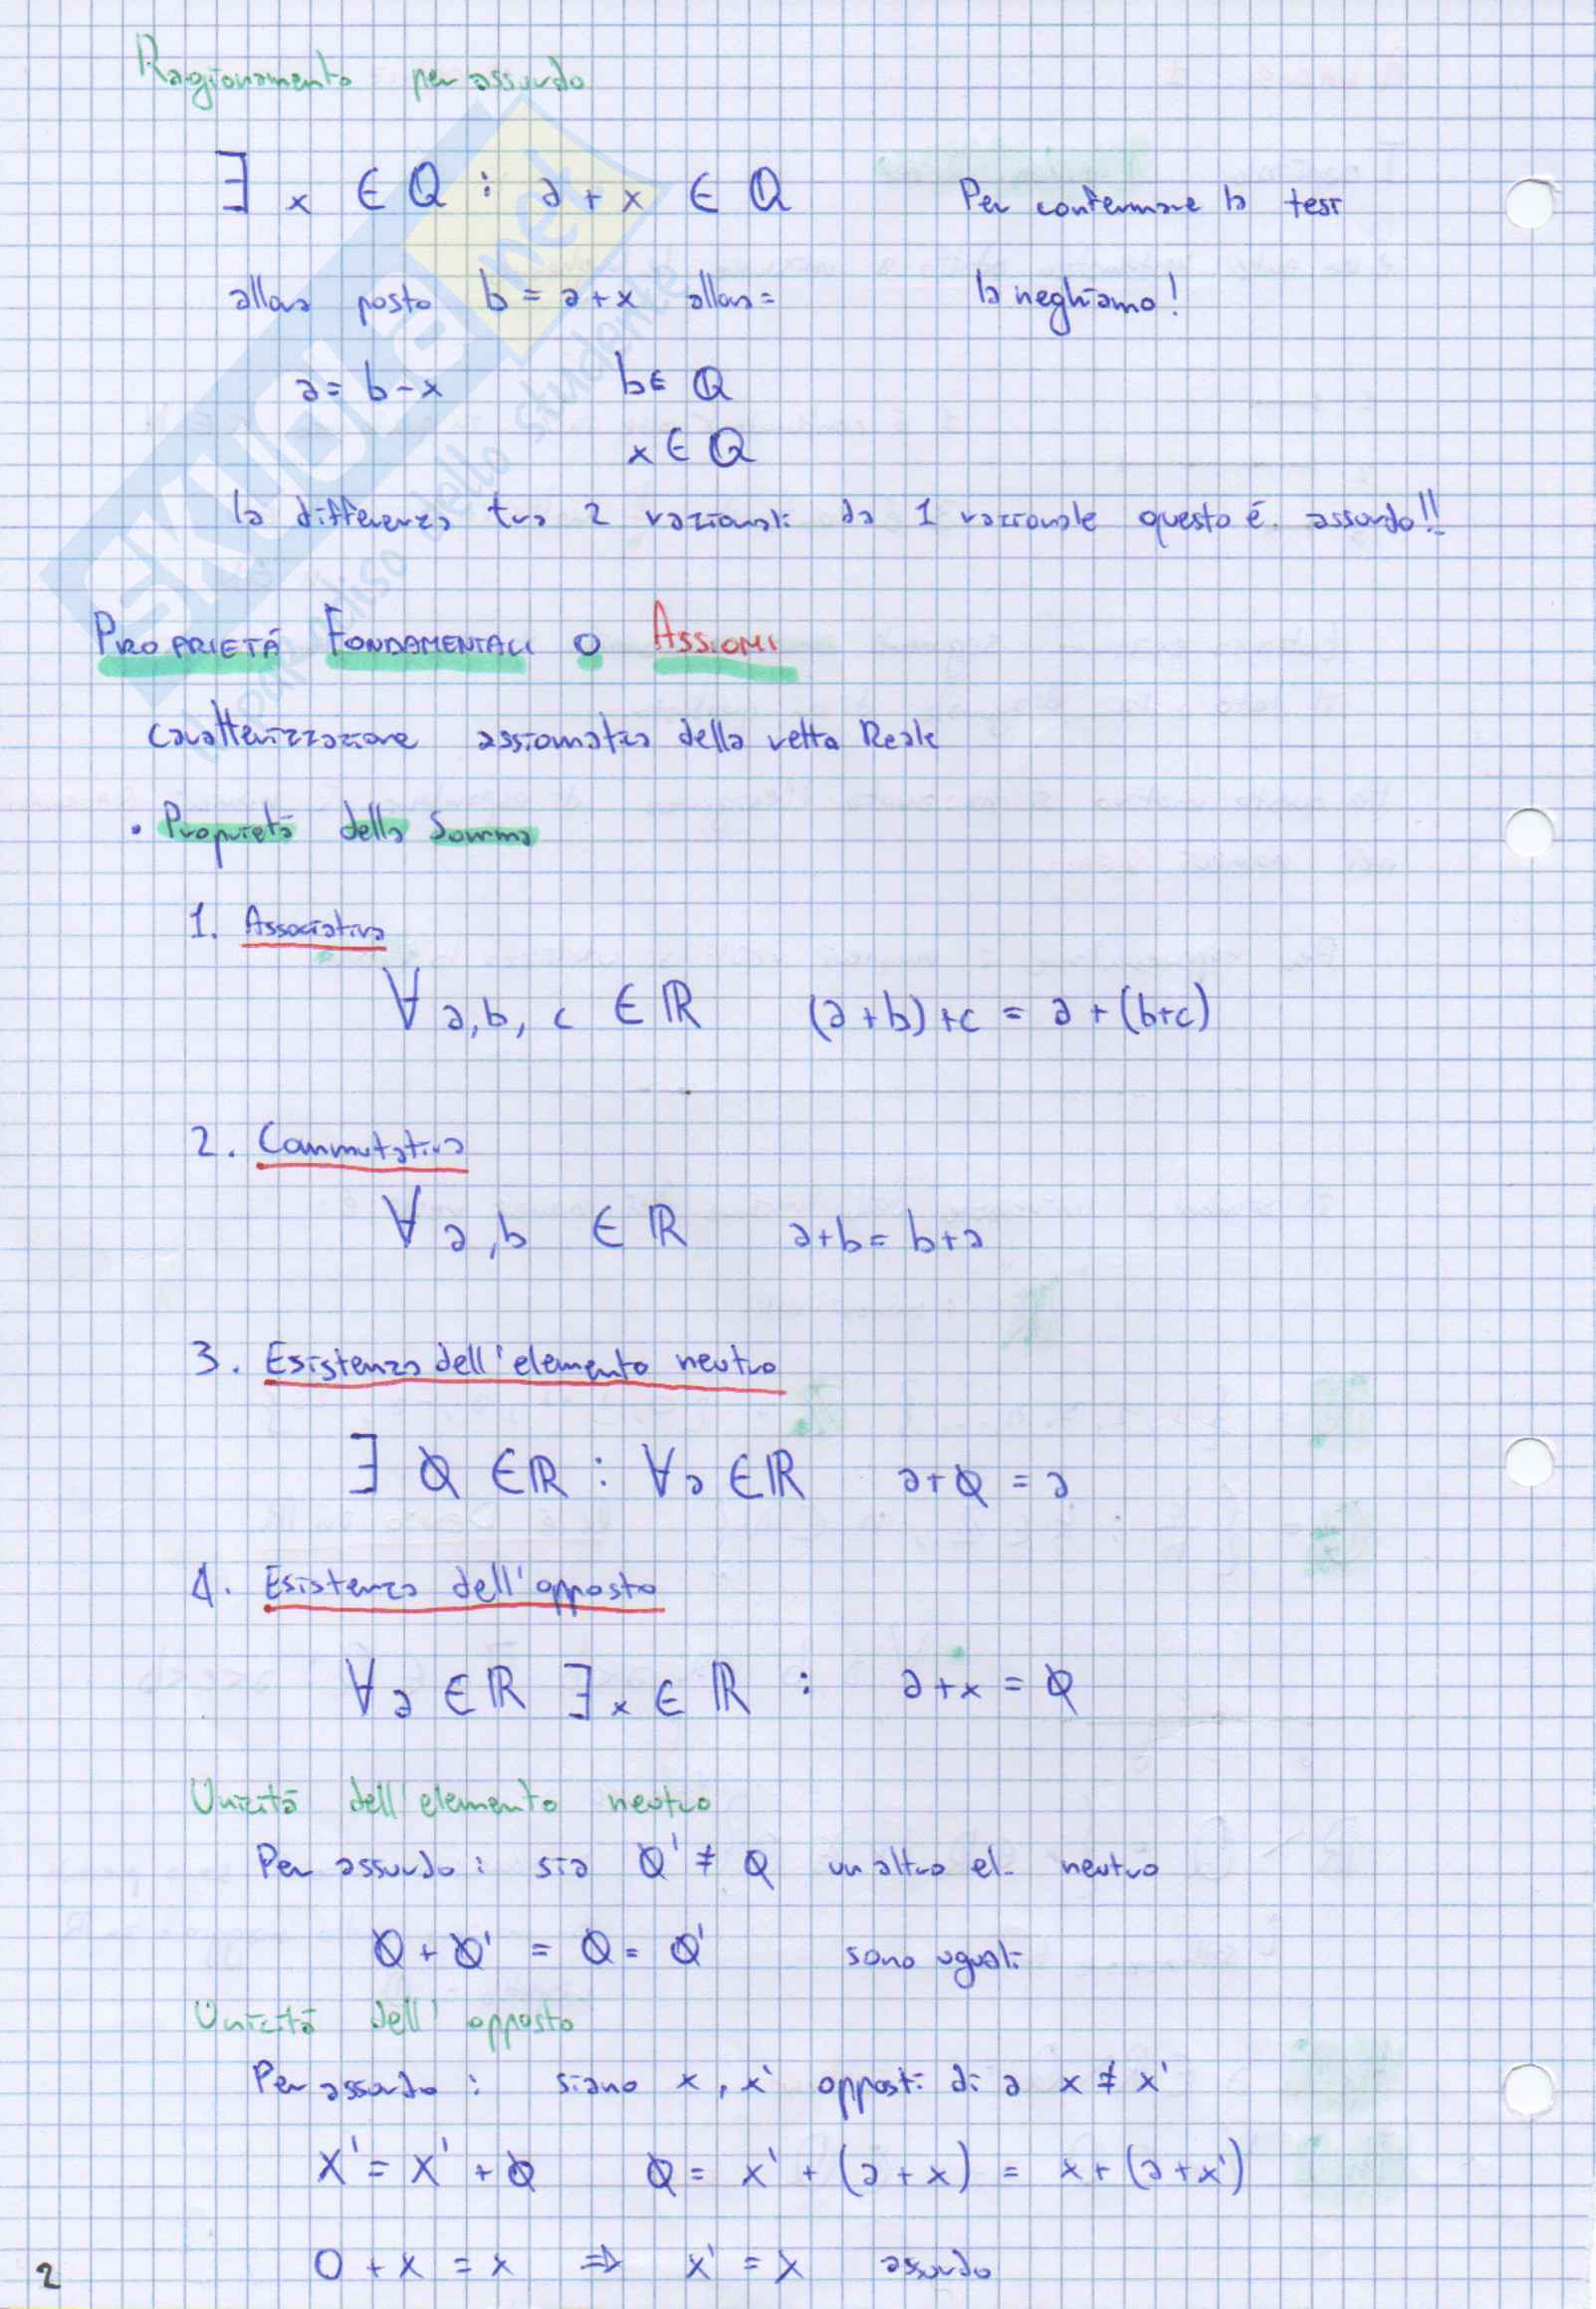 Ragionamento per assurdo
∃ x ∈ ℚ : a + x ∈ ℚ Per confermare la tesi
allora posto b = a + x allora = la neghiamo!
a = b - x b ∈ ℚ
x ∈ ℚ
la differenza tra 2 razionali da 1 razionale questo é assurdo!!
PROPRIETÁ FONDAMENTALI O ASSIOMI
caratterizzazione assiomatica della retta Reale
• Proprietà della Somma
1. Associativa
∀ a, b, c ∈ ℝ (a + b) + c = a + (b+c)
2. Commutativa
∀ a, b ∈ ℝ a+b = b+a
3. Esistenza dell'elemento neutro
∃ 0 ∈ ℝ : ∀ a ∈ ℝ a+0 = a
4. Esistenza dell'opposto
∀ a ∈ ℝ ∃ x ∈ ℝ : a+x = 0
Unicità dell'elemento neutro
Per assurdo : sia 0' ≠ 0 un altro el. neutro
0 + 0' = 0 = 0' sono uguali
Unicità dell' opposto
Per assurdo : siano x, x' opposti di a x ≠ x'
x' = x' + 0 0 = x' + (a + x) = x + (a + x')
0 + x = x ⇒ x' = x assurdo
2
SKUOLA.net
il paradiso dello studente